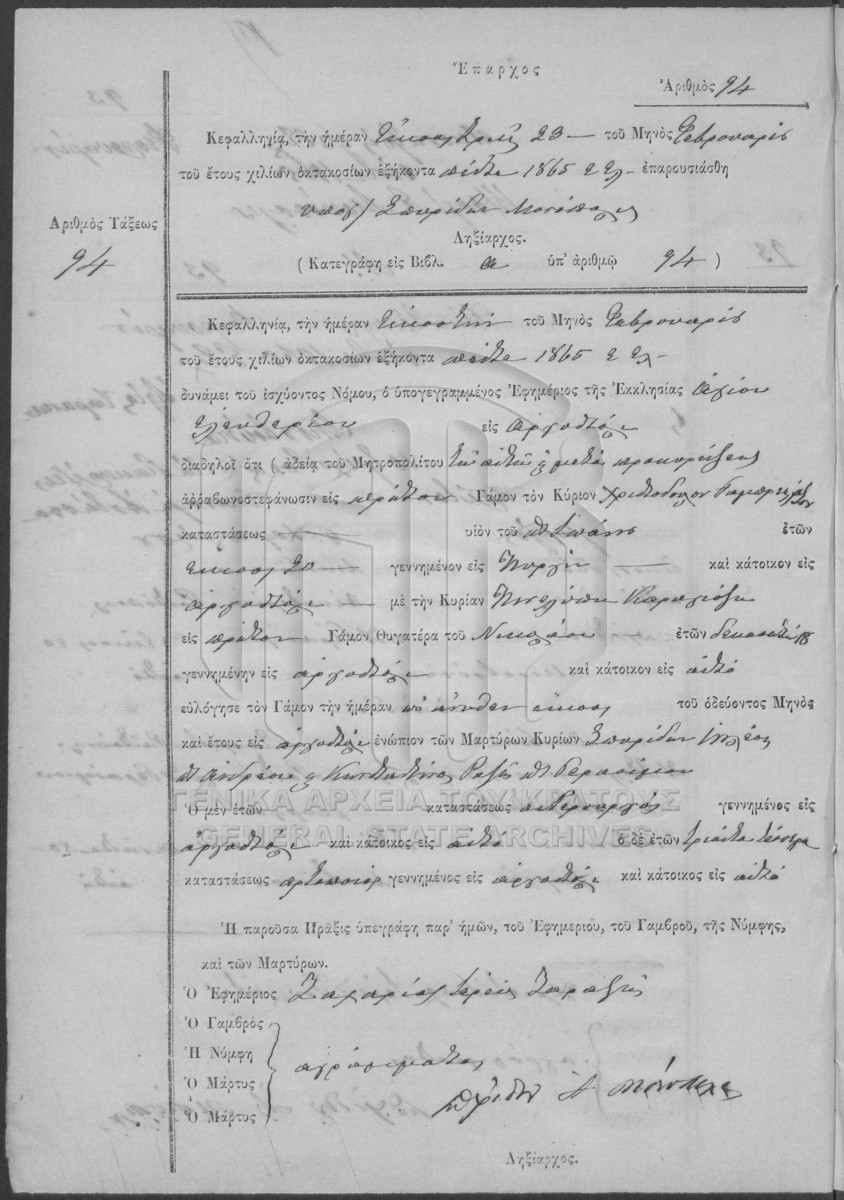 Ἔπαρχος
Ἀριθμὸς 94
Κεφαλληγία, τὴν ἡμέραν Εἴκοσι τρεῖς 23 — τοῦ Μηνὸς Φεβρουαρίου
τοῦ ἔτους χιλίων ὀκτακοσίων ἑξήκοντα πέντε 1865 ἐπαρουσιάσθη
υπογ/ Σπυρίδων
Ληξίαρχος.
Ἀριθμὸς Τάξεως
94
( Κατεγράφη εἰς Βιβλ. α ὑπ' ἀριθμῷ 94 )
Κεφαλληνία, τὴν ἡμέραν Εικοστὴν τοῦ Μηνὸς Φεβρουαρίου
τοῦ ἔτους χιλίων ὀκτακοσίων ἑξήκοντα πέντε 1865
δυνάμει τοῦ ἰσχύοντος Νόμου, ὁ ὑπογεγραμμένος Ἐφημέριος τῆς Ἐκκλησίας Αγίου
Ελευθερίου εἰς Αργοστόλι
διαδηλοῖ ὅτι ( ἀδείᾳ τοῦ Μητροπολίτου μετὰ προκηρύξεις
ἀρραβωνοστεφάνωσιν εἰς πρῶτον Γάμον τὸν Κύριον Χριστόδουλον
καταστάσεως — υἱὸν τοῦ ποτ Σπύρου ἐτῶν
είκοσι 20 — γεννημένον εἰς — καὶ κάτοικον εἰς
Αργοστόλι — μὲ τὴν Κυρίαν Πηνελόπη
εἰς πρῶτον Γάμον Θυγατέρα τοῦ Νικολάου — ἐτῶν δεκαοκτώ 18
γεννημένην εἰς Αργοστόλι καὶ κάτοικον εἰς αυτό
εὐλόγησε τὸν Γάμον τὴν ἡμέραν είκοσι τοῦ ὁδεύοντος Μηνὸς
καὶ ἔτους εἰς Αργοστόλι ἐνώπιον τῶν Μαρτύρων Κυρίων Σπυρίδων
ποτ Ανδρέου & Κωνσταντίνος ποτ Γερασίμου
Ὁ μὲν ἐτῶν καταστάσεως γεννημένος εἰς
Αργοστόλι καὶ κάτοικος εἰς αυτό ὁ δὲ ἐτῶν τριάντα τέσσερα
καταστάσεως αρτοποιός γεννημένος εἰς Αργοστόλι καὶ κάτοικος εἰς αυτό
Ἡ παροῦσα Πρᾶξις ὑπεγράφη παρ' ἡμῶν, τοῦ Ἐφημερίου, τοῦ Γαμβροῦ, τῆς Νύμφης,
καὶ τῶν Μαρτύρων.
Ὁ Ἐφημέριος Ζαχαρίας ιερεύς
Ὁ Γαμβρὸς
Ἡ Νύμφη αγράμματοι
Ὁ Μάρτυς
Ὁ Μάρτυς
Ληξίαρχος.
ΓΕΝΙΚΑ ΑΡΧΕΙΑ ΤΟΥ ΚΡΑΤΟΥΣ
GENERAL STATE ARCHIVES